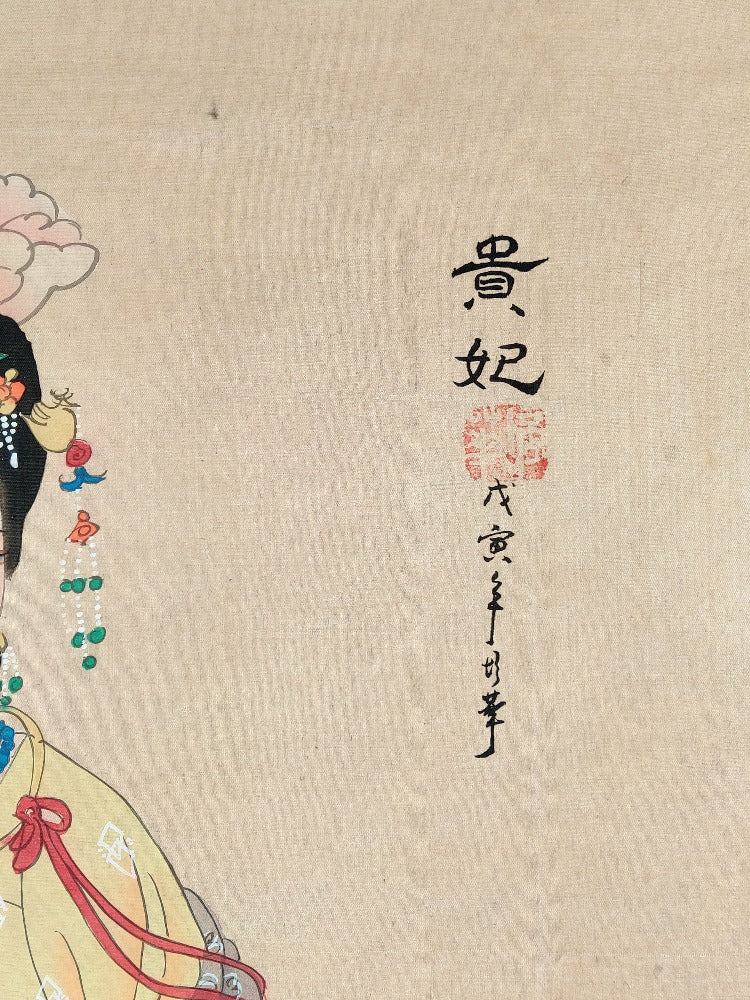 貴妃
戊寅年